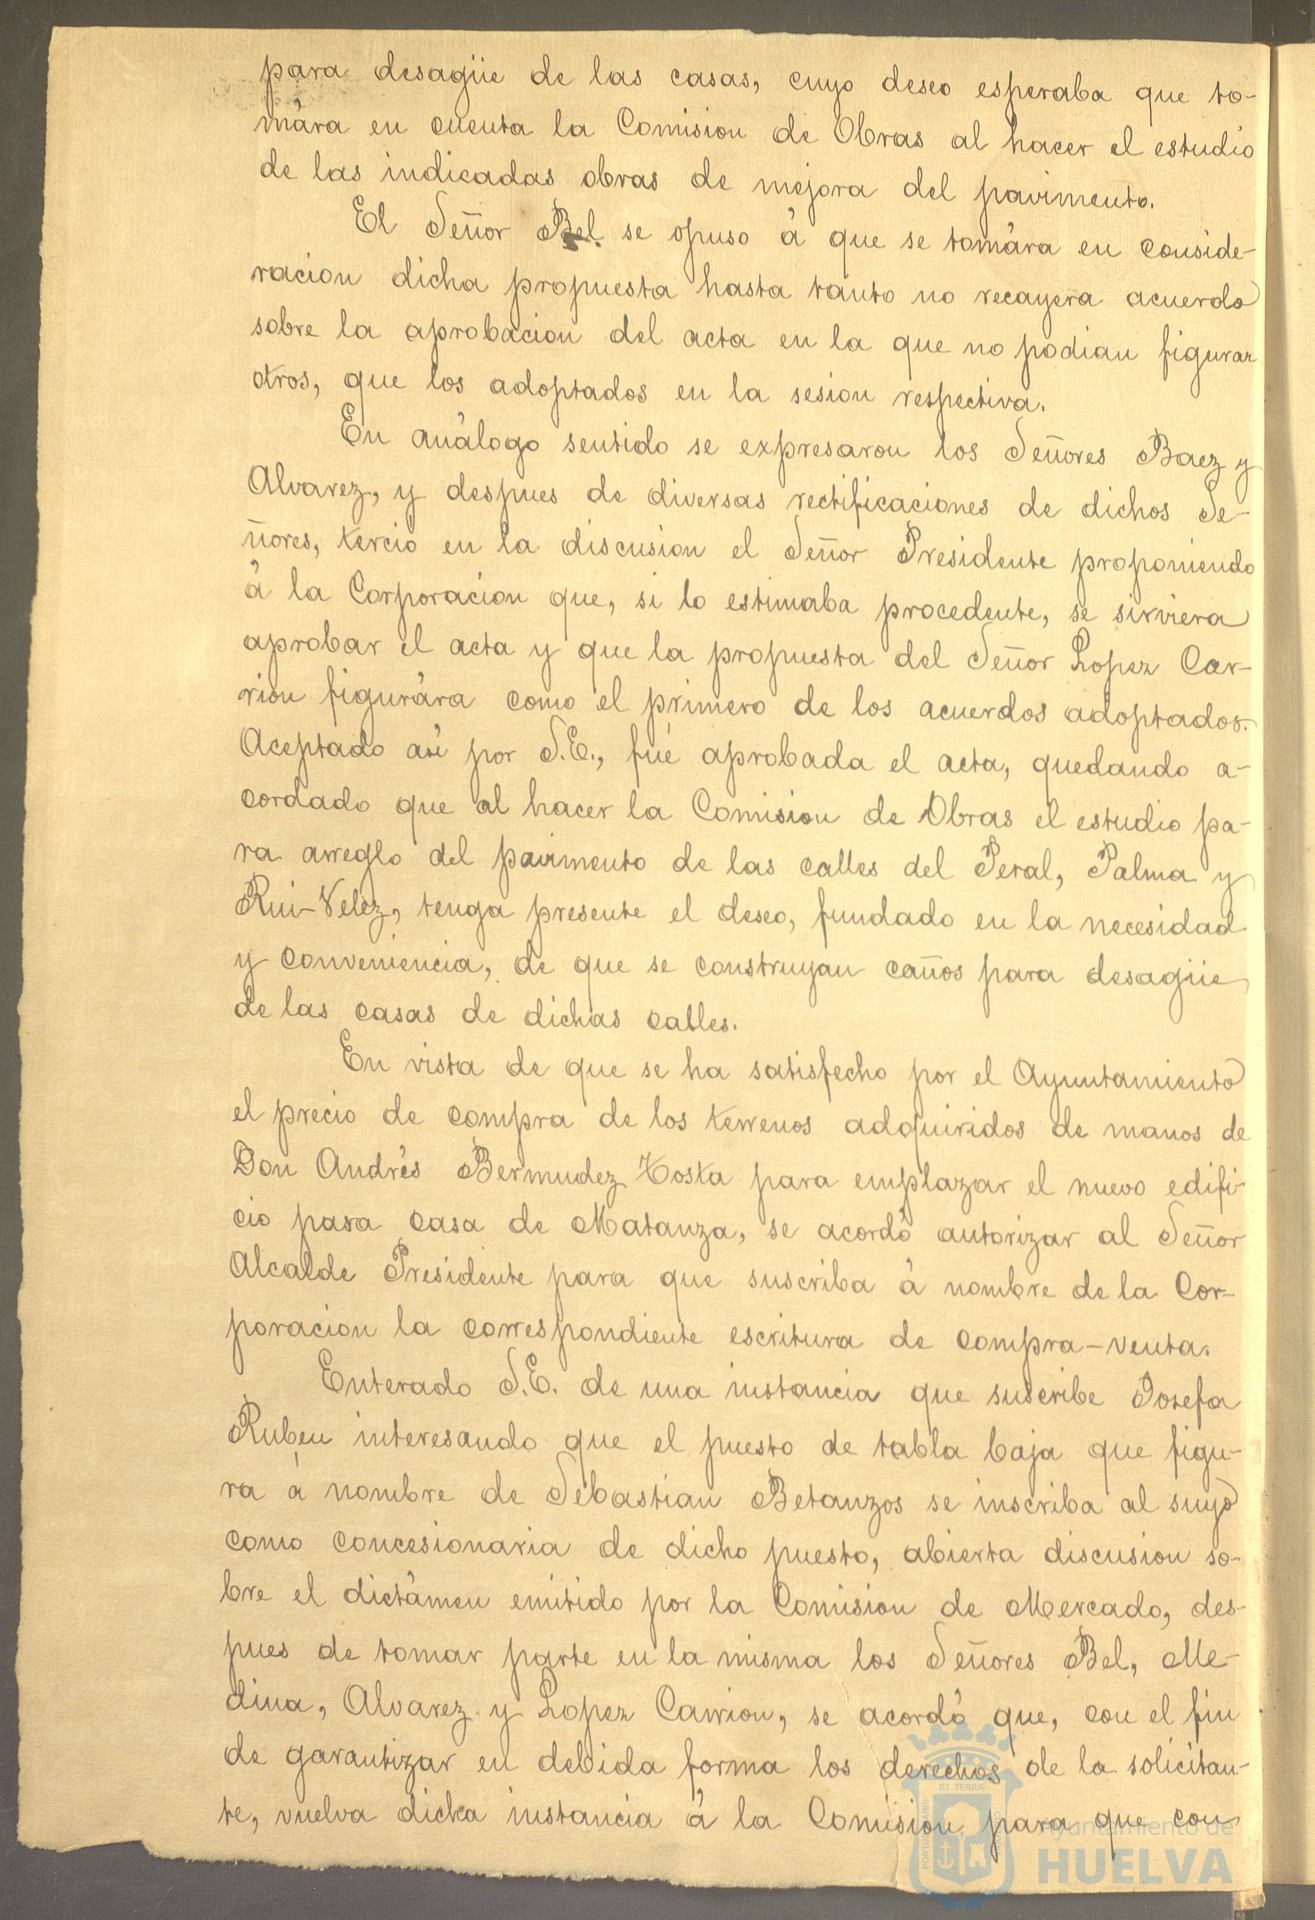 para desagüe de las casas, cuyo deseo esperaba que to-
mára en cuenta la Comision de Obras al hacer el estudio
de las indicadas obras de mejora del pavimento.
El Señor Bel se opuso á que se tomára en conside-
racion dicha propuesta hasta tanto no recayera acuerdo
sobre la aprobacion del acta en la que no podian figurar
otros, que los adoptados en la sesion respectiva.
En análogo sentido se expresaron los Señores Baez y
Alvarez, y despues de diversas rectificaciones de dichos Se-
ñores, terció en la discusion el Señor Presidente proponiendo
á la Corporacion que, si lo estimaba procedente, se sirviera
aprobar el acta y que la propuesta del Señor Lopez Car-
rion figurára como el primero de los acuerdos adoptados.
Aceptado así por S.E., fué aprobada el acta, quedando a-
cordado que al hacer la Comision de Obras el estudio pa-
ra arreglo del pavimento de las calles del Peral, Palma y
Rui-Velez, tenga presente el deseo, fundado en la necesidad
y conveniencia, de que se construyan caños para desagüe
de las casas de dichas calles.
En vista de que se ha satisfecho por el Ayuntamiento
el precio de compra de los terrenos adquiridos de manos de
Don Andrés Bermudez Tosta para emplazar el nuevo edifi-
cio para casa de Matanza, se acordó autorizar al Señor
Alcalde Presidente para que suscriba á nombre de la Cor-
poracion la correspondiente escritura de compra-venta.
Enterado S.E. de una instancia que suscribe Josefa
Ruben interesando que el puesto de tabla baja que figu-
ra á nombre de Sebastian Betanzos se inscriba al suyo
como concesionaria de dicho puesto, abierta discusion so-
bre el dictámen emitido por la Comision de Mercado, des-
pues de tomar parte en la misma los Señores Bel, Me-
dina, Alvarez y Lopez Carrion, se acordó que, con el fin
de garantizar en debida forma los derechos de la solicitan-
te, vuelva dicha instancia á la Comision para que con
ET TERRA
Ayuntamiento de
HUELVA